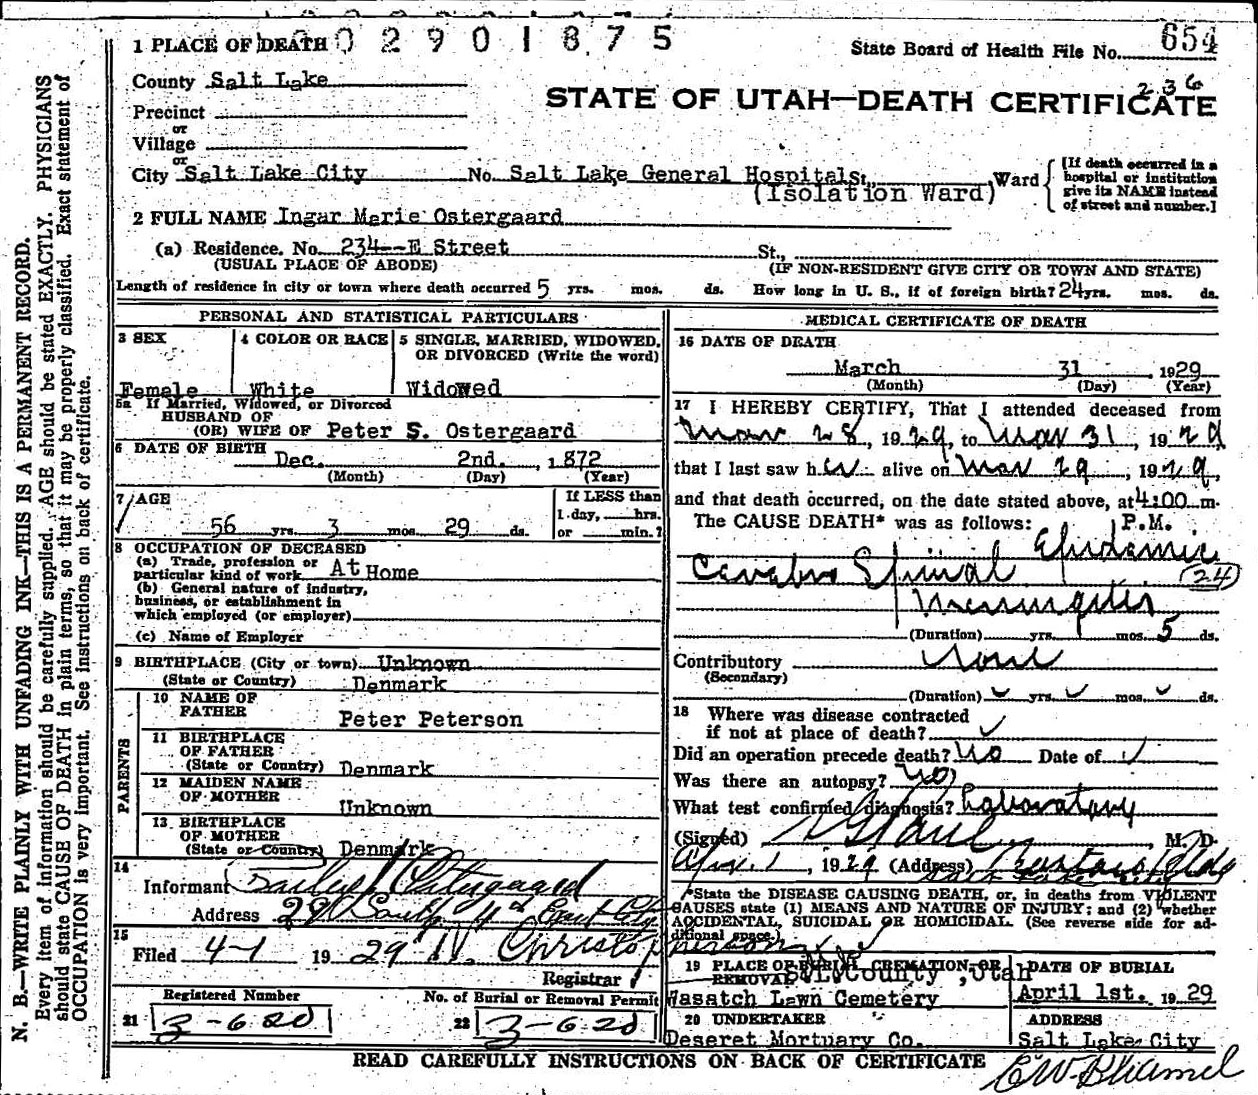 0 0 2 9 0 1 8 7 5
1 PLACE OF DEATH
State Board of Health File No. 654
County Salt Lake
236
STATE OF UTAH—DEATH CERTIFICATE
Precinct
or
Village
or
City Salt Lake City No. Salt Lake General Hospital St., Ward
(Isolation Ward)
[If death occurred in a hospital or institution give its NAME instead of street and number.]
2 FULL NAME Ingar Marie Ostergaard
(a) Residence. No. 234--E Street St.,
(USUAL PLACE OF ABODE) (IF NON-RESIDENT GIVE CITY OR TOWN AND STATE)
Length of residence in city or town where death occurred 5 yrs. mos. ds. How long in U. S., if of foreign birth? 24 yrs. mos. ds.
PERSONAL AND STATISTICAL PARTICULARS
3 SEX
Female
4 COLOR OR RACE
White
5 SINGLE, MARRIED, WIDOWED,
OR DIVORCED (Write the word)
Widowed
5a If Married, Widowed, or Divorced
HUSBAND OF
(OR) WIFE OF Peter S. Ostergaard
6 DATE OF BIRTH
Dec. 2nd. , 1872
(Month) (Day) (Year)
7 AGE
56 yrs. 3 mos. 29 ds.
If LESS than
1 day, hrs.
or min.?
8 OCCUPATION OF DECEASED
(a) Trade, profession or
particular kind of work At Home
(b) General nature of industry,
business, or establishment in
which employed (or employer)
(c) Name of Employer
9 BIRTHPLACE (City or town) Unknown
(State or Country) Denmark
PARENTS
10 NAME OF
FATHER Peter Peterson
11 BIRTHPLACE
OF FATHER
(State or Country) Denmark
12 MAIDEN NAME
OF MOTHER Unknown
13 BIRTHPLACE
OF MOTHER
(State or Country) Denmark
14
Informant Ostergaard
Address
15
Filed 4-1 1929
Registrar
Registered Number
21 3-620
No. of Burial or Removal Permit
22 3-620
MEDICAL CERTIFICATE OF DEATH
16 DATE OF DEATH
March 31 , 1929
(Month) (Day) (Year)
17 I HEREBY CERTIFY, That I attended deceased from
Mar 28, 1929, to Mar 31, 1929
that I last saw her alive on Mar 29, 1929,
and that death occurred, on the date stated above, at 4:00 m.
The CAUSE DEATH* was as follows: P.M.
Epidemic
Cerebro Spinal (24)
Meningitis
(Duration) yrs. mos. 5 ds.
Contributory None
(Secondary)
(Duration) yrs. mos. ds.
18 Where was disease contracted
if not at place of death?
Did an operation precede death? No Date of
Was there an autopsy? No
What test confirmed diagnosis? Laboratory
(Signed) M. D.
Apr. 1, 1929 (Address)
*State the DISEASE CAUSING DEATH, or, in deaths from VIOLENT
CAUSES state (1) MEANS AND NATURE OF INJURY; and (2) whether
ACCIDENTAL, SUICIDAL OR HOMICIDAL. (See reverse side for ad-
ditional space.)
19 PLACE OF BURIAL, CREMATION, OR
REMOVAL S.L. County, Utah
Wasatch Lawn Cemetery
DATE OF BURIAL
April 1st. 1929
20 UNDERTAKER
Deseret Mortuary Co.
ADDRESS
Salt Lake City
READ CAREFULLY INSTRUCTIONS ON BACK OF CERTIFICATE
N. B.—WRITE PLAINLY WITH UNFADING INK—THIS IS A PERMANENT RECORD.
Every item of information should be carefully supplied. AGE should be stated EXACTLY. PHYSICIANS
should state CAUSE OF DEATH in plain terms, so that it may be properly classified. Exact statement of
OCCUPATION is very important. See instructions on back of certificate.